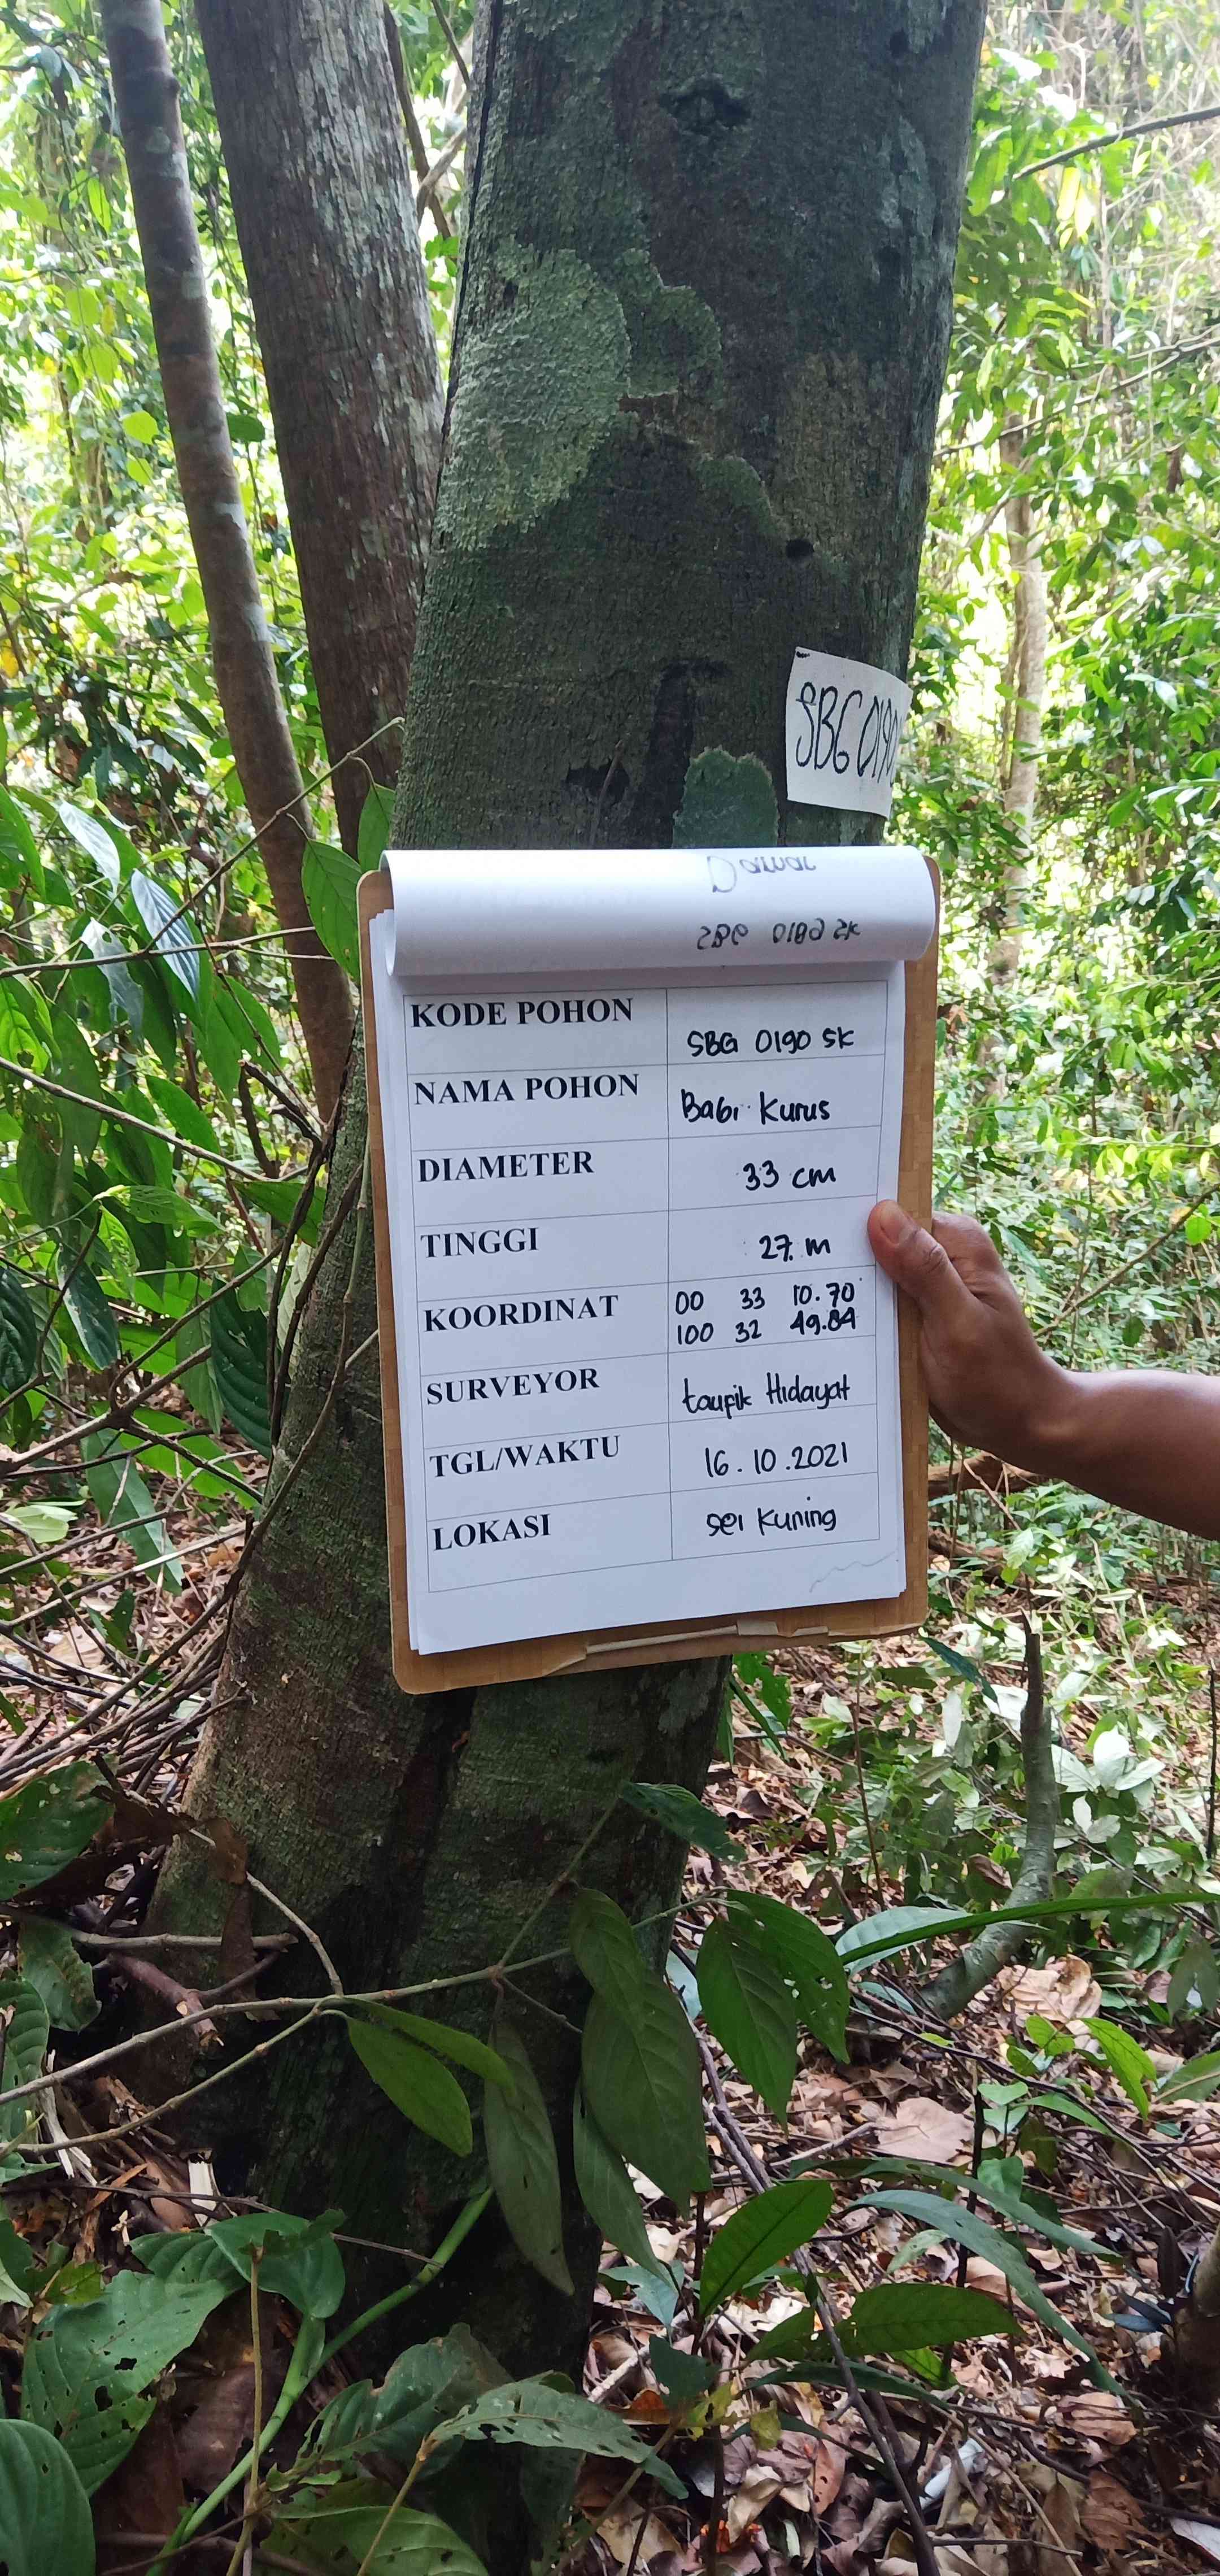 SBG 0190
KODE POHON
SBG 0190 SK
NAMA POHON
Babi Kurus
DIAMETER
33 cm
TINGGI
27 m
KOORDINAT
00 33 10.70
100 32 49.84
SURVEYOR
taufik Hidayat
TGL/WAKTU
16.10.2021
LOKASI
sei Kuning